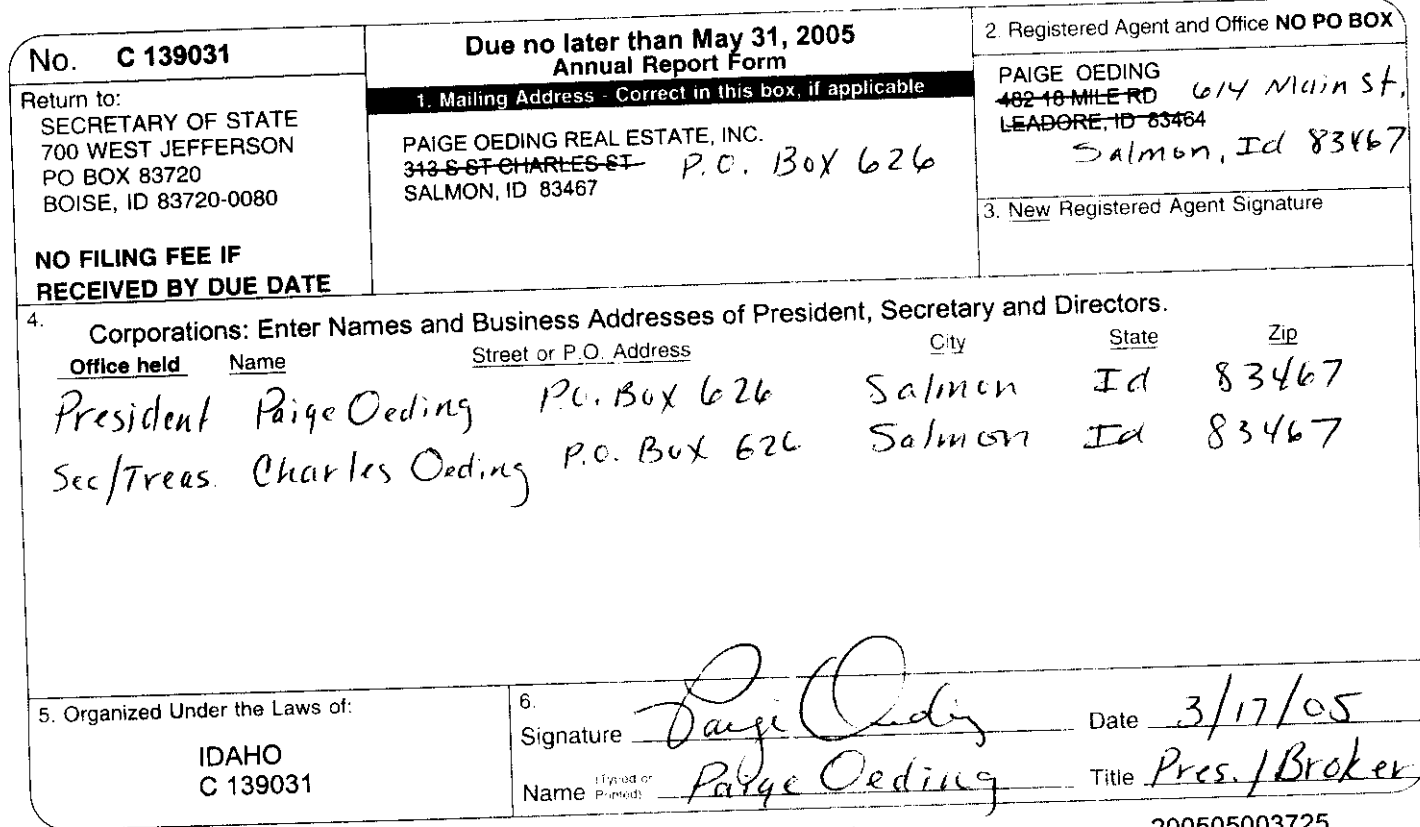 No. C 139031
Return to:
SECRETARY OF STATE
700 WEST JEFFERSON
PO BOX 83720
BOISE, ID 83720-0080
NO FILING FEE IF
RECEIVED BY DUE DATE
Due no later than May 31, 2005
Annual Report Form
1. Mailing Address - Correct in this box, if applicable
PAIGE OEDING REAL ESTATE, INC.
313 S ST CHARLES ST P.O. Box 626
SALMON, ID 83467
2. Registered Agent and Office NO PO BOX
PAIGE OEDING
482 18 MILE RD 614 Main St,
LEADORE, ID 83464
Salmon, Id 83467
3. New Registered Agent Signature
4. Corporations: Enter Names and Business Addresses of President, Secretary and Directors.
Office held Name Street or P.O. Address City State Zip
President Paige Oeding P.O. Box 626 Salmon Id 83467
Sec/Treas. Charles Oeding P.O. Box 626 Salmon Id 83467
5. Organized Under the Laws of:
IDAHO
C 139031
6.
Signature Paige Oeding Date 3/17/05
Name (Typed or Printed) Paige Oeding Title Pres. / Broker
200505003725